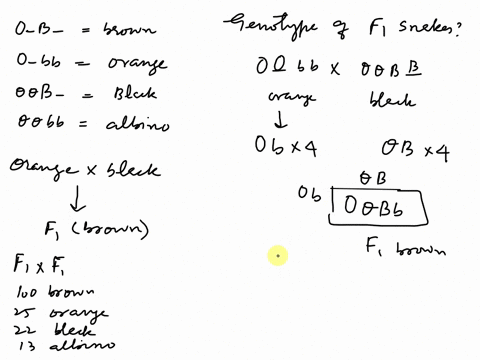 O_B_ = brown
O_bb = orange
θθB_ = Black
θθbb = albino
Orange x black
↓
F₁ (brown)
F₁ x F₁
100 brown
25 orange
22 black
13 albino
Genotype of F₁ snakes?
OO bb x θθBB
orange black
↓
Ob x 4 θB x 4
θB
Ob OθBb
F₁ brown